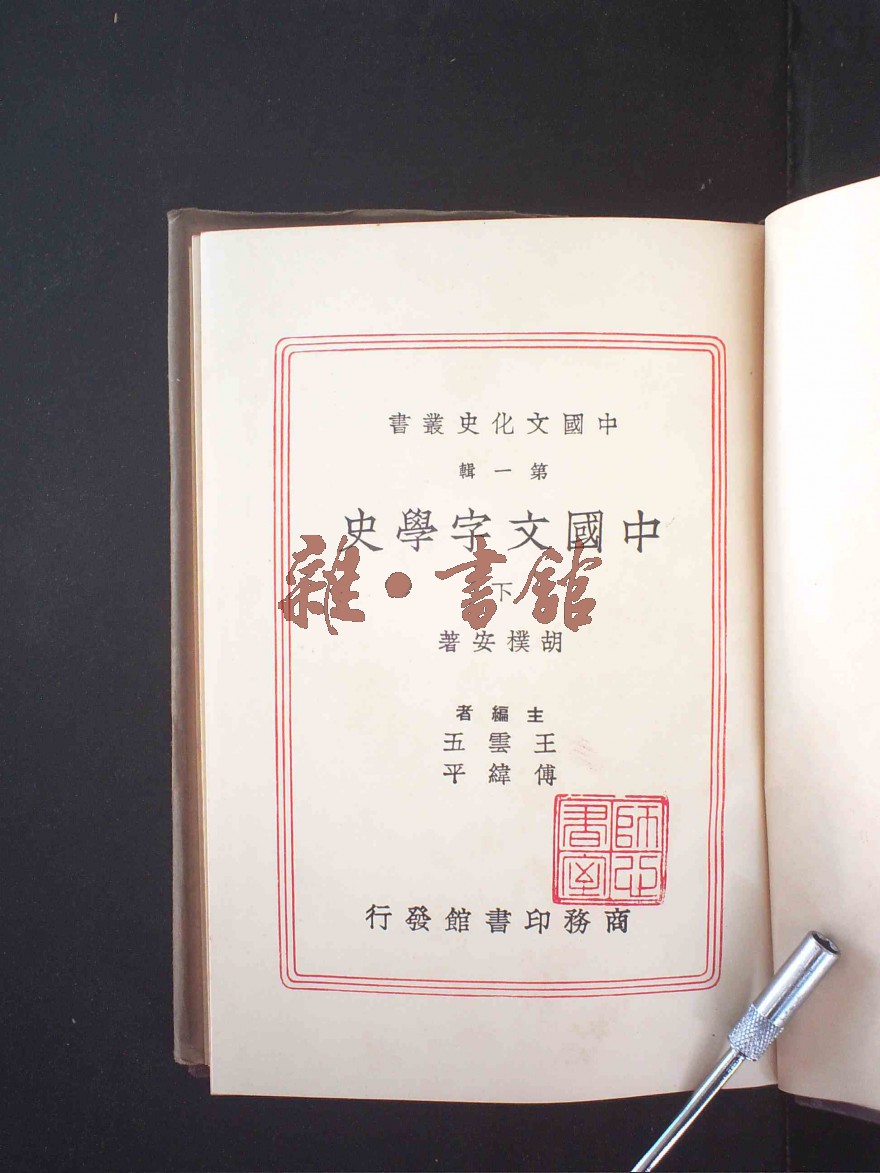 中國文化史叢書
第一輯
中國文字學史
下
雜·書館
胡樸安著
主編者
王雲五
傅緯平
商務印書館發行